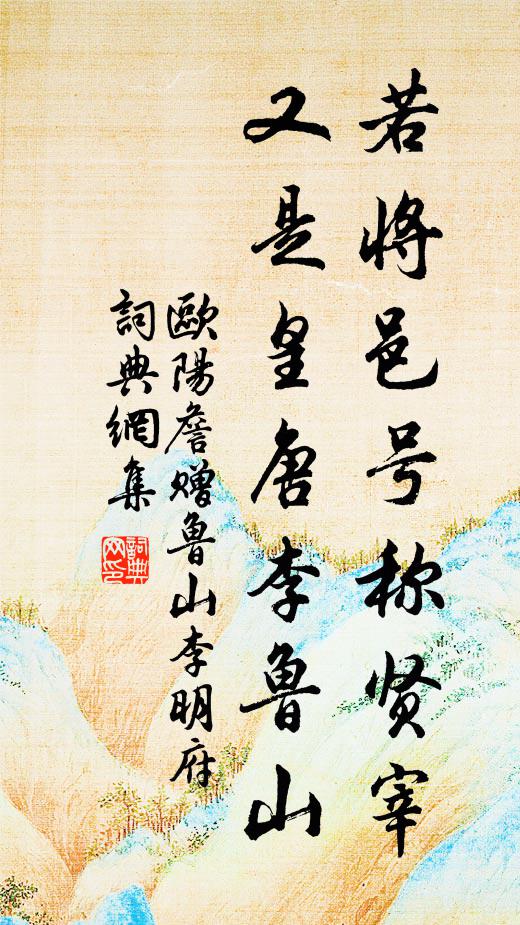 若将邑号称贤宰
又是皇唐李鲁山
歐陽詹赠鲁山李明府
詞典網集
詞典
网印